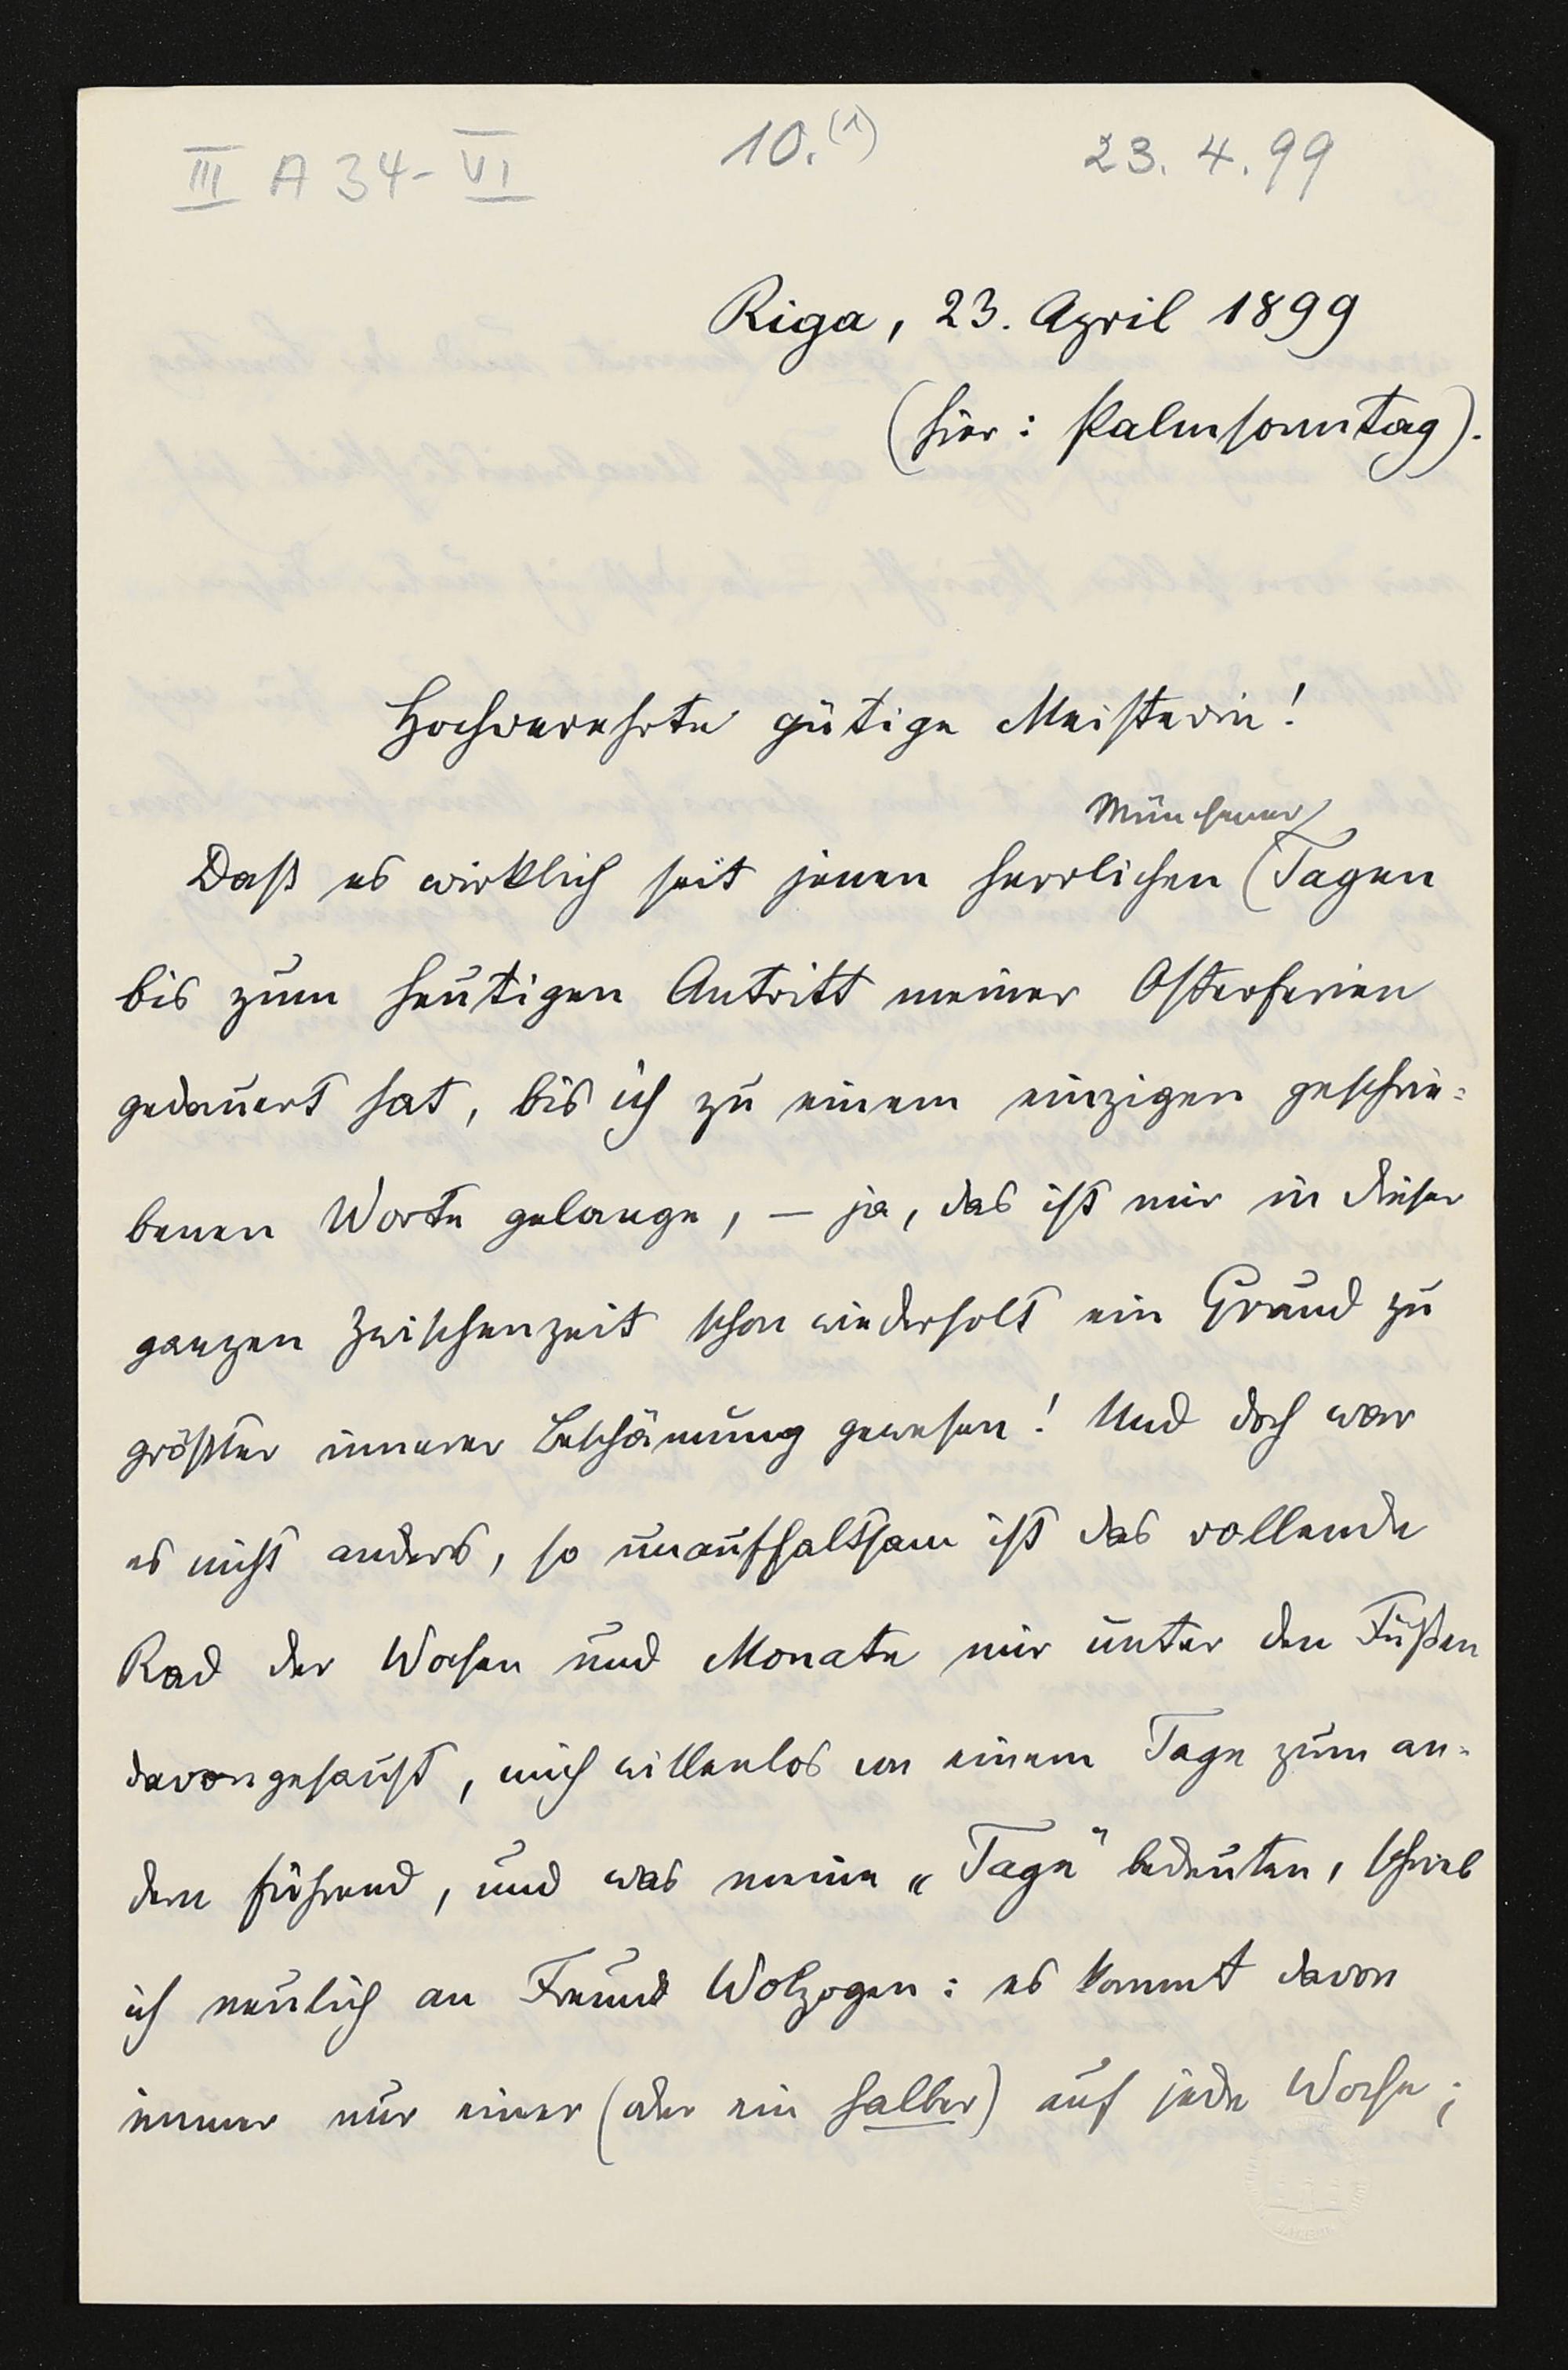 III A 34-VI 10.(1) 23. 4. 99
Riga, 23. April 1899
(hier: Palmsonntag).
Hochverehrte gütige Meisterin!
Münchener
Daß es wirklich seit jenen herrlichen (Tagen
bis zum heutigen Antritt meiner Osterferien
gedauert hat, bis ich zu einem einzigen geschrie-
benen Worte gelange, — ja, das ist mir in dieser
ganzen Zwischenzeit schon wiederholt ein Grund zu
größter innerer Beschämung gewesen! Und doch war
es nicht anders, so unaufhaltsam ist das rollende
Rad der Wochen und Monate mir unter den Füßen
davongesaust, mich willenlos von einem Tage zum an-
dern führend, und was meine „Tage" bedeuten, schrieb
ich neulich an Freund Wolzogen: es kommt davon
immer nur einer (oder ein halber) auf jede Woche;